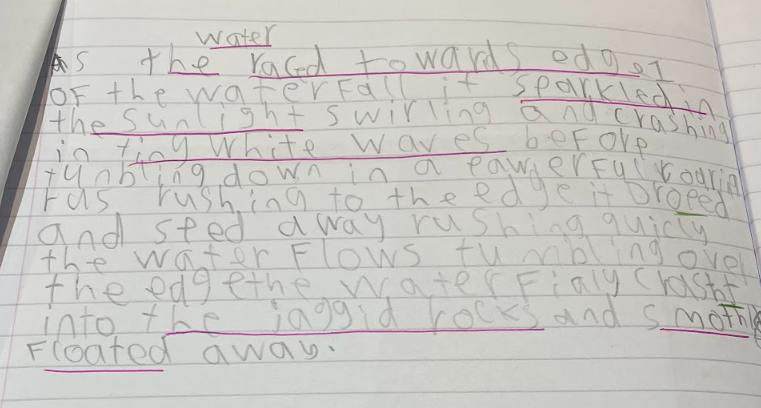 water
As the raced towards edge
OF the waterFall it sparkled in
the sunlight swirling and crashing
in tiny white waves before
tunbling down in a pawerful roarin
ras rushing to the edge it Droped
and sped away rushing quicly
the water Flows tumbling over
the edge the water Fialy crasht
into the jaggid rocks and smothle
Floated away.